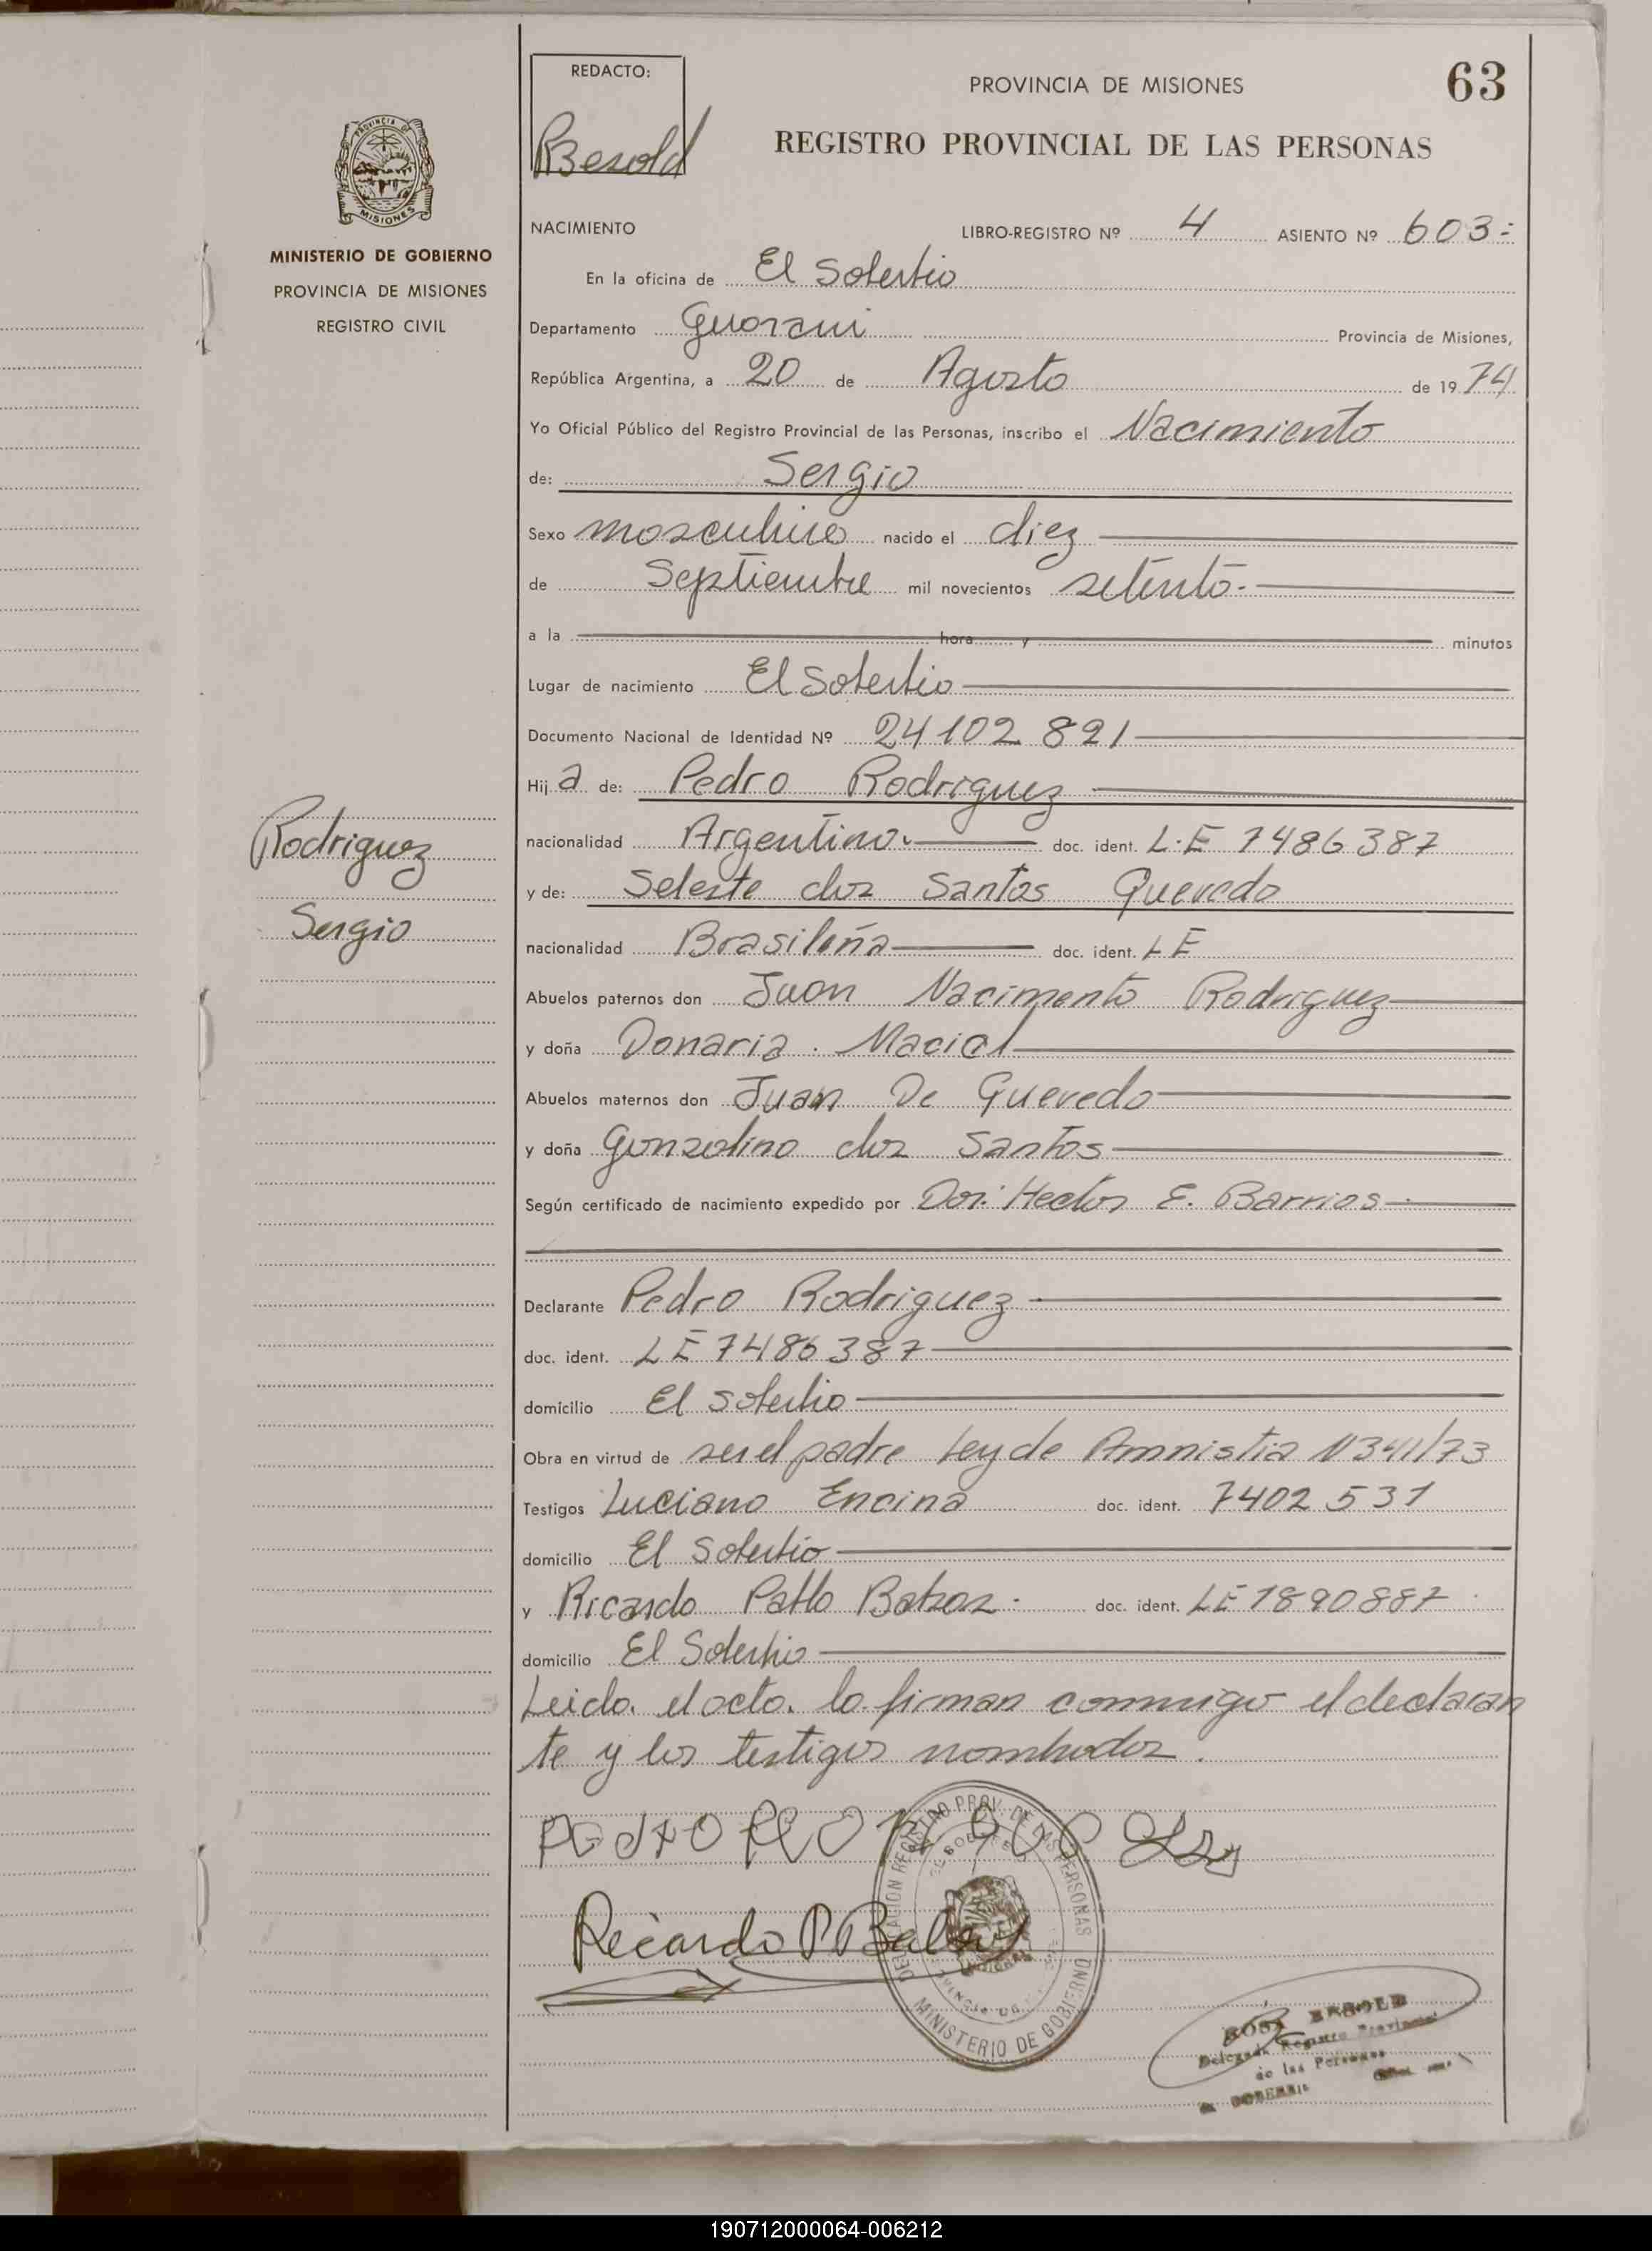 REDACTO:
Besold
PROVINCIA DE MISIONES
63
REGISTRO PROVINCIAL DE LAS PERSONAS
PROVINCIA DE
MISIONES
MINISTERIO DE GOBIERNO
PROVINCIA DE MISIONES
REGISTRO CIVIL
NACIMIENTO
LIBRO-REGISTRO Nº 4 ASIENTO Nº 603
En la oficina de El Soberbio
Departamento Guarani Provincia de Misiones,
República Argentina, a 20 de Agosto de 1974
Yo Oficial Público del Registro Provincial de las Personas, inscribo el Nacimiento
de: Sergio
Sexo masculino nacido el diez
de Septiembre mil novecientos setenta.
a la hora y minutos
Lugar de nacimiento El Soberbio
Documento Nacional de Identidad Nº 24102821
Hij a de: Pedro Rodriguez
nacionalidad Argentino. doc. ident. L.E 7486387
Rodriguez
y de: Seleste dos Santos Quevedo
Sergio
nacionalidad Brasileña doc. ident. LE
Abuelos paternos don Juan Nacimento Rodriguez
y doña Donaria. Maciel
Abuelos maternos don Juan De Quevedo
y doña Gonzalina dos Santos
Según certificado de nacimiento expedido por Dor. Hector E. Barrios
Declarante Pedro Rodriguez
doc. ident. LE 7486387
domicilio El Soberbio
Obra en virtud de ser el padre Ley de Amnistia N 341/73
Testigos Luciano Encina doc. ident. 7402531
domicilio El Soberbio
y Ricardo Pablo Batzos. doc. ident. LE 7890887
domicilio El Soberbio
Leido. el acto. lo firman conmigo el declaran
te y los testigos nombrados.
Ricardo P
DELEGACION REGISTRO PROV. DE LAS PERSONAS
MINISTERIO DE GOBIERNO
ROSA BESOLD
Delegada Registro Provincial
de las Personas
190712000064-006212